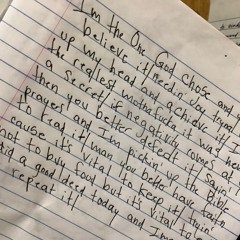 I'm the One God chose and y
believe it, Needin' Joy tryna
up my head and achieve it, I
the realest motherfucka it was he
a secret, if negativity comes at
then you better defeat it Sayin'
prayers and I'm pickin' up the Bible
to read it, man you better have faith
cause it's Vital to keep it, tryin'
not to buy food but it's vital to
did a good deed today and I'm
repeat it,